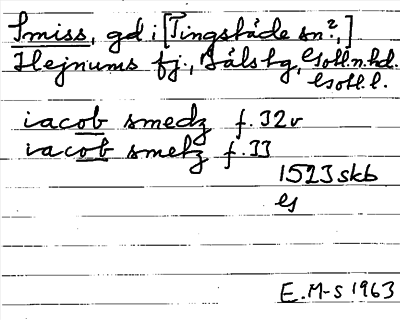 Smiss, gd i [Tingstäde sn?,]
Hejnums fj., Bäls tg, Gotl.n.hd.
Gotl.l.
iacob smedz f. 32v
iacob smetz f. 33
1523 skb
E.M-s 1963